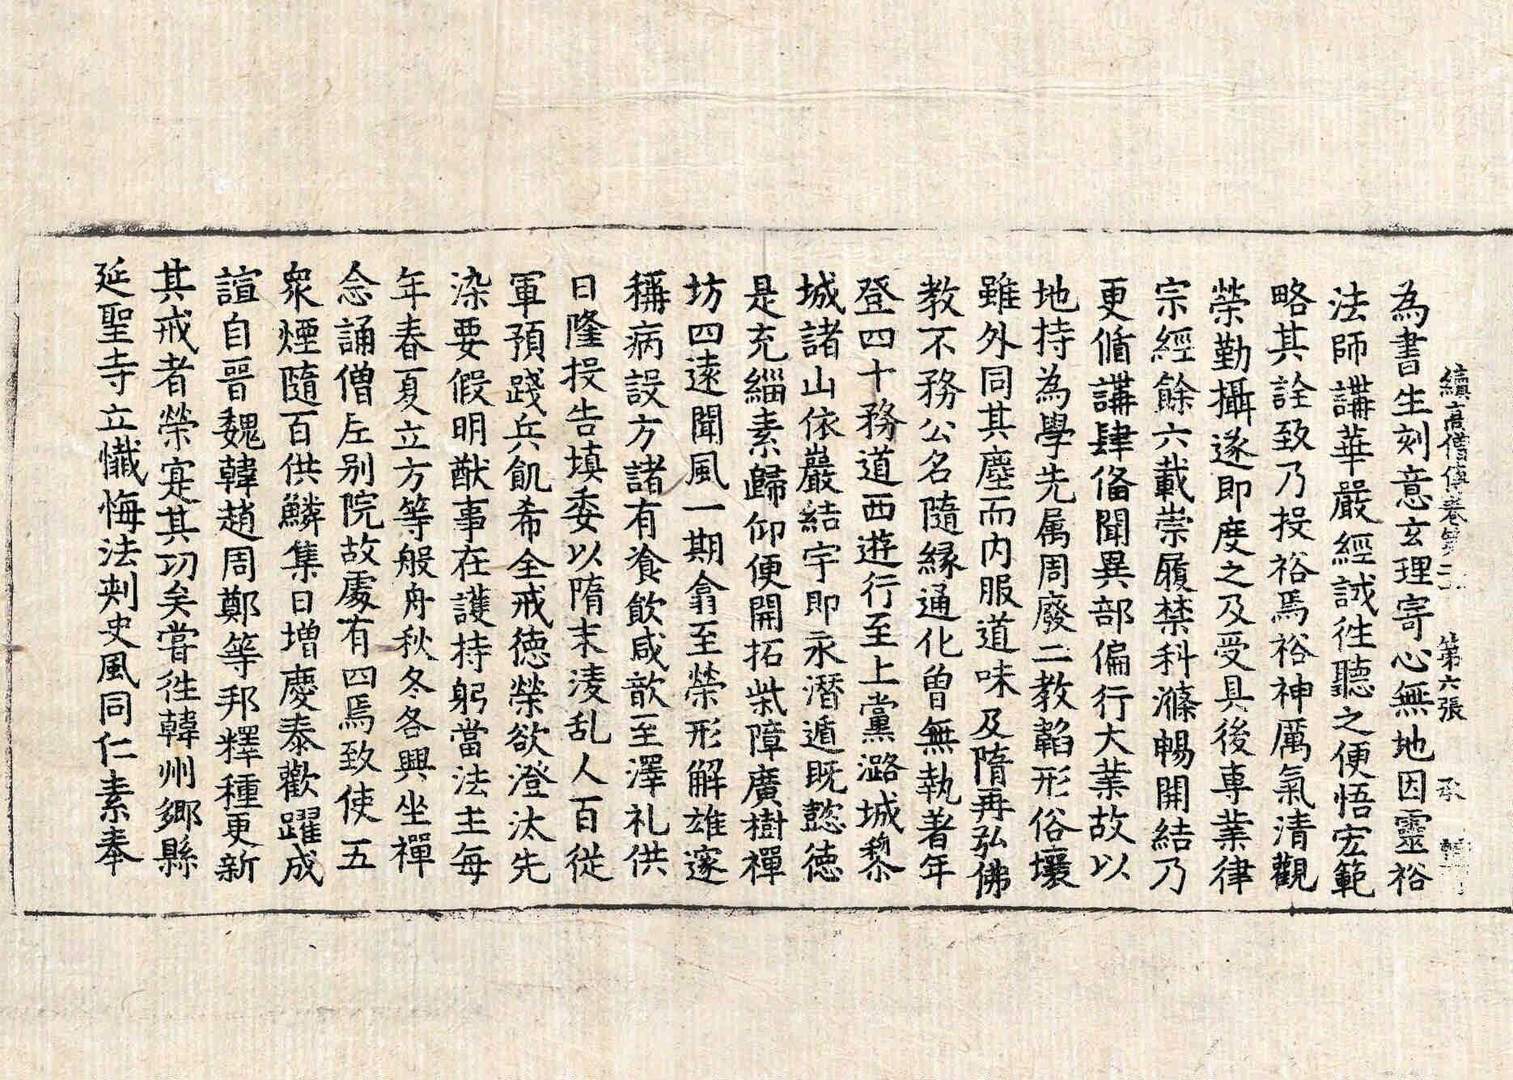 續高僧傳卷第二 第六張 承
為書生刻意玄理寄心無地因靈裕
法師講華嚴經試徃聽之便悟宏範
略其詮致乃投裕焉裕神厲氣清觀
榮勤攝遂即度之及受具後專業律
宗經餘六載崇履禁科滌暢開結乃
更循講肆俻聞異部偏行大業故以
地持為學先属周廢二教韜形俗壤
雖外同其塵而內服道味及隋再弘佛
教不務公名隨緣通化曾無執著年
登四十務道西遊行至上黨潞城黎
城諸山依巖結宇即永潛遁既懿德
是充緇素歸仰便開拓柴障廣樹禪
坊四遠聞風一期翕至榮形解雄邃
稱病設方諸有飡飲咸歆至澤礼供
日隆投告填委以隋末淩乱人百從
軍預踐兵飢希全戒德榮欲澄汰先
染要假明猷事在護持躬當法主每
年春夏立方等般舟秋冬各興坐禪
念誦僧左别院故處有四焉致使五
衆煙隨百供鱗集日增慶泰歡躍成
諠自晉魏韓趙周鄭等邦釋種更新
其戒者榮寔其功矣甞徃韓州鄉縣
延聖寺立懺悔法刺史風同仁素奉